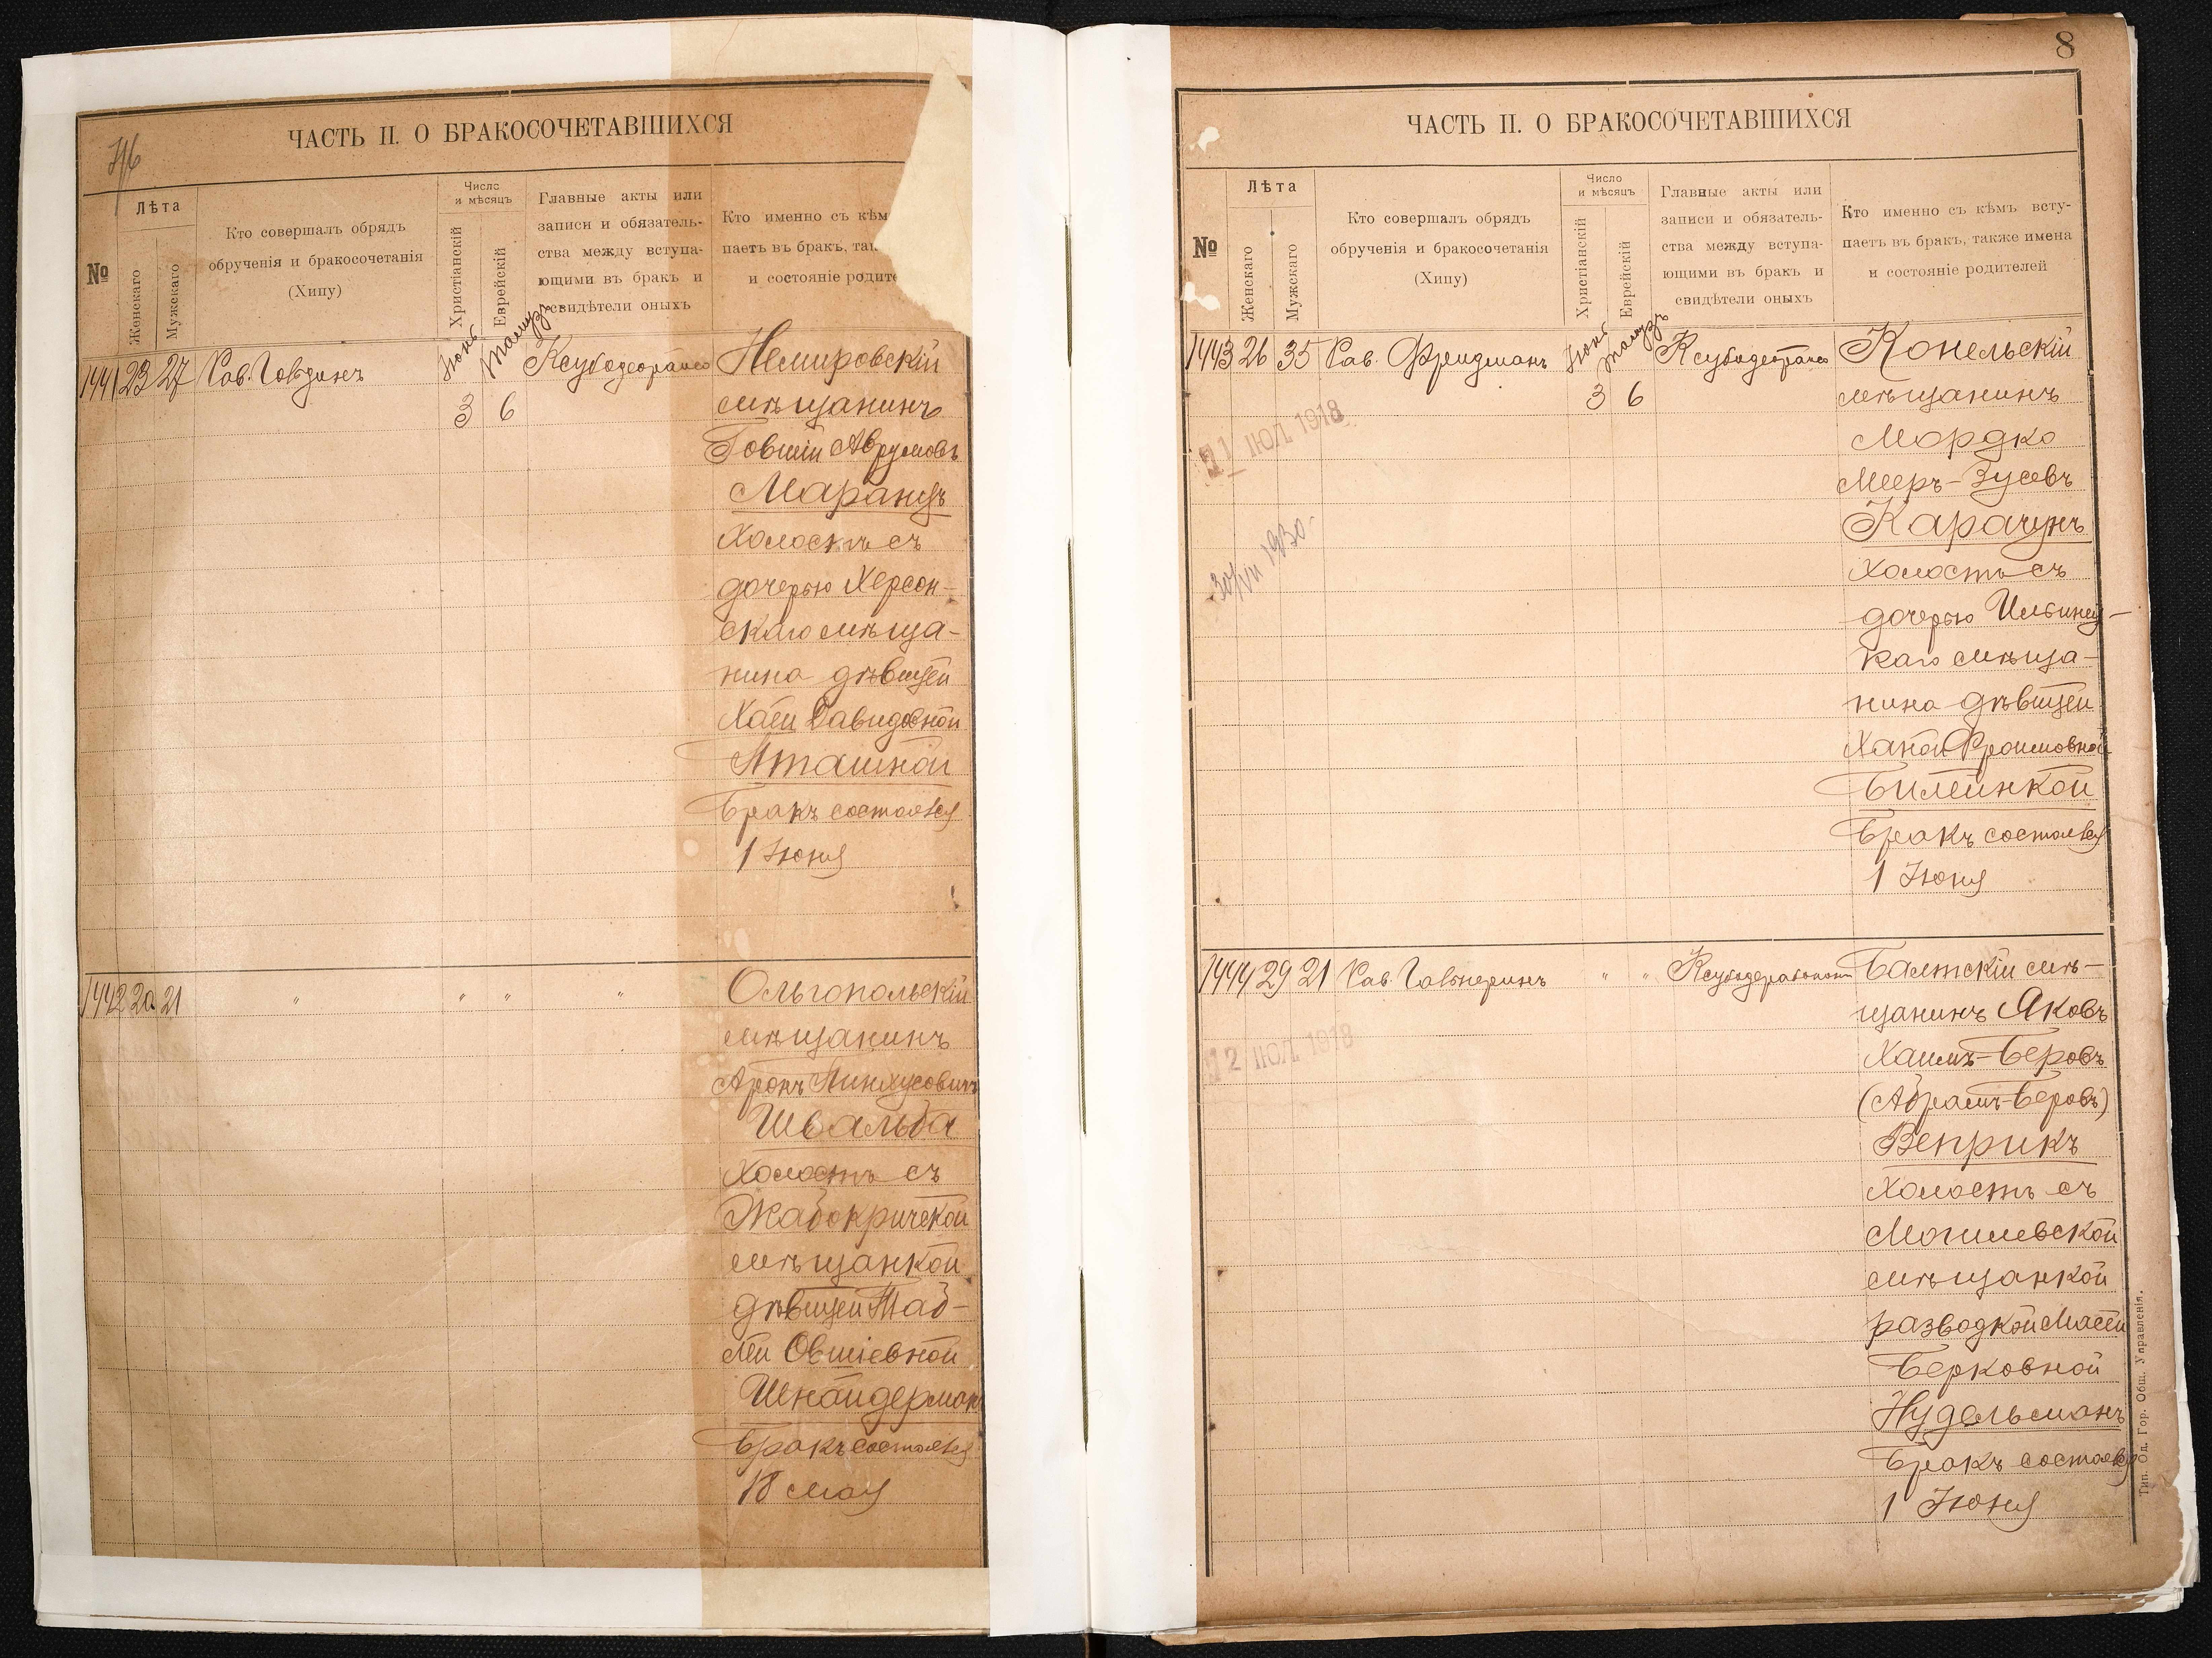 ЧАСТЬ II. О БРАКОСОЧЕТАВШИХСЯ
№
Лѣта
Женскаго
Мужскаго
Кто совершалъ обрядъ
обрученія и бракосочетанія
(Хипу)
Число
и мѣсяцъ
Христіанскій
Еврейскій
Главные акты или
записи и обязатель-
ства между вступа-
ющими въ бракъ и
свидѣтели оныхъ
Кто именно съ кѣм
паетъ въ бракъ, так
и состояніе родите
1441 23 27 Рав.
Іюнь Тамузъ
3 6
Немировскій
мѣщанинъ
Іовшій Аврумовъ
Маранцъ
холостъ съ
дочерью Херсон-
скаго мѣща-
нина дѣвицей
Хаей Давидовной
Аташной
Бракъ состоялся
1 Іюня
1442 20 21 " " " "
Ольгопольскій
мѣщанинъ
Аронъ Пинхусовичъ
Швальба
холостъ съ
Жабокричской
мѣщанкой
дѣвицей Таб-
лей Овшіевной
Шнайдерман
Бракъ состоялся
18 мая
8
ЧАСТЬ II. О БРАКОСОЧЕТАВШИХСЯ
№
Лѣта
Женскаго
Мужскаго
Кто совершалъ обрядъ
обрученія и бракосочетанія
(Хипу)
Число
и мѣсяцъ
Христіанскій
Еврейскій
Главные акты или
записи и обязатель-
ства между вступа-
ющими въ бракъ и
свидѣтели оныхъ
Кто именно съ кѣмъ всту-
паетъ въ бракъ, также имена
и состояніе родителей
1443 26 35 Рав. Фридманъ
Іюнь Тамузъ
3 6
Конельскій
мѣщанинъ
Мордко
Мееръ-Зусевъ
Карачунъ
холостъ съ
дочерью Ильинец-
каго мѣща-
нина дѣвицей
Ханой Фроимовной
Билейнкой
Бракъ состоялся
1 Іюня
11 ІЮЛ 1918
30/VII 1930
1444 29 21 Рав. " "
Балтскій мѣ-
щанинъ Яковъ
Хаимъ-Беровъ
(Абрамъ-Беровъ)
Веприкъ
холостъ съ
Могилевской
мѣщанкой
разводкой Масей
Берковной
Нудельманъ
Бракъ состоялся
1 Іюня
12 ІЮЛ 1918
Тип. Од. Гор. Общ. Управленія.